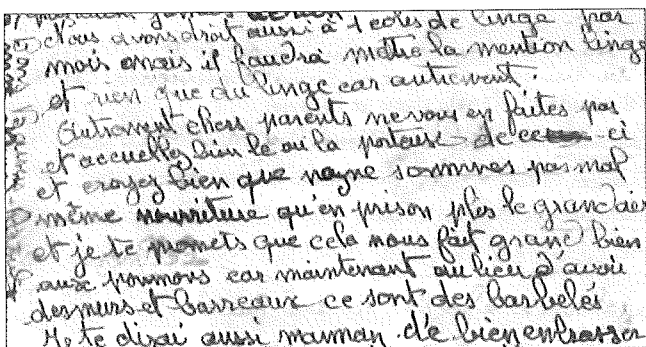 Nous avons droit aussi à 1 colis de linge par
mois mais il faudra mettre la mention linge
et rien que du linge car autrement.
Autrement chers parents ne vous en faites pas
et accueillez bien le ou la porteuse de ceci
et croyez bien que nous ne sommes pas mal
même nourriture qu'en prison plus le grand air
et je te promets que cela nous fait grand bien
aux poumons car maintenant au lieu d'avoir
des murs et barreaux ce sont des barbelés
Je te dirai aussi maman de bien embrasser